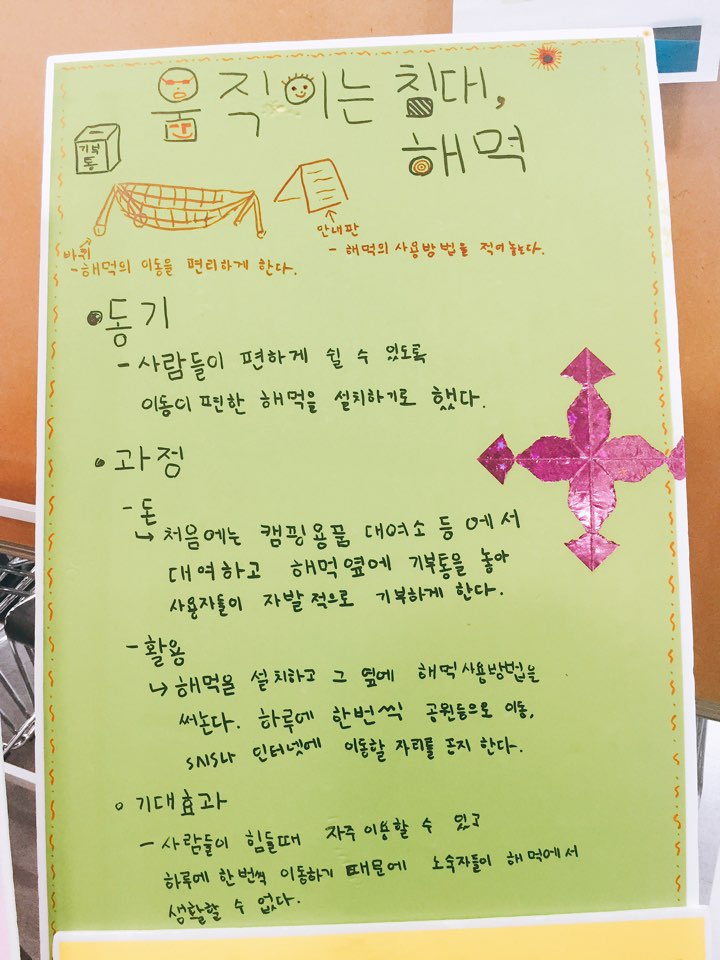 움직이는 침대,
해먹
기부
통
바퀴
- 해먹의 이동을 편리하게 한다.
안내판
- 해먹의 사용방법을 적어놓는다.
동기
- 사람들이 편하게 쉴 수 있도록
이동이 편한 해먹을 설치하기로 했다.
과정
- 돈
↳ 처음에는 캠핑용품 대여소 등에서
대여하고 해먹옆에 기부통을 놓아
사용자들이 자발적으로 기부하게 한다.
- 활용
↳ 해먹을 설치하고 그 옆에 해먹사용방법을
써논다. 하루에 한번씩 공원등으로 이동,
SNS나 인터넷에 이동할 자리를 곤지 한다.
기대효과
- 사람들이 힘들때 자주 이용할 수 있고
하루에 한번씩 이동하기 때문에 노숙자들이 해먹에서
생활할 수 없다.